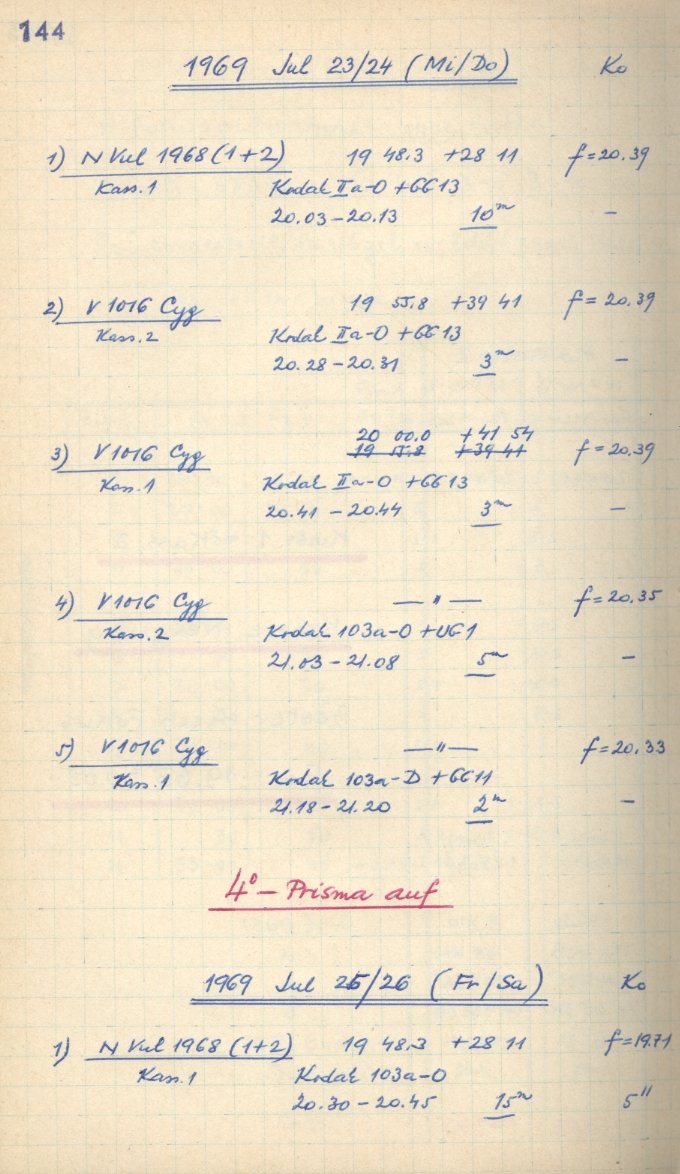 144
1969 Jul 23/24 (Mi/Do) Ko
1) N Vul 1968 (1+2) 19 48.3 +28 11 f=20.39
Kass.1 Kodak IIa-O +GG13
20.03 – 20.13 10m –
2) V 1016 Cyg 19 55.8 +39 41 f= 20.39
Kass.2 Kodak IIa-O +GG13
20.28 – 20.31 3m –
20 00.0 +41 54
3) V 1016 Cyg 19 55.8 +39 41 f=20.39
Kass.1 Kodak IIa-O +GG13
20.41 – 20.44 3m –
4) V 1016 Cyg — " — f=20.35
Kass.2 Kodak 103a-O +UG1
21.03 – 21.08 5m –
5) V 1016 Cyg — " — f=20.33
Kass.1 Kodak 103a-D +GG11
21.18 – 21.20 2m –
4° – Prisma auf
1969 Jul 25/26 (Fr/Sa) Ko
1) N Vul 1968 (1+2) 19 48.3 +28 11 f=19.71
Kass.1 Kodak 103a-O
20.30 – 20.45 15m 5"